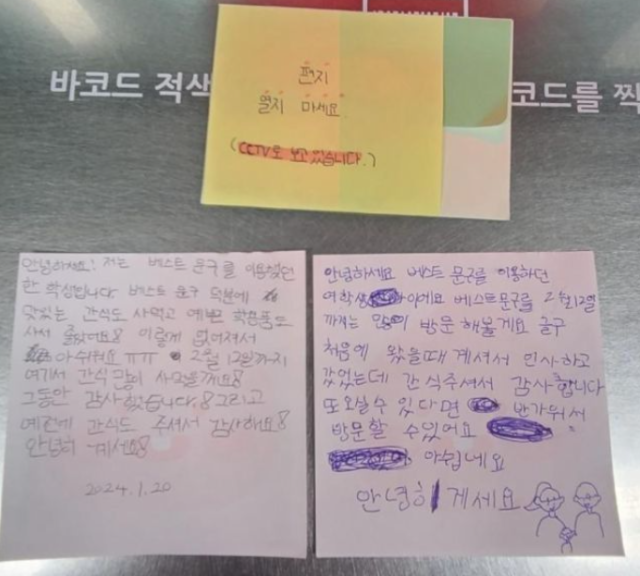 바코드 적색
코드를 찍
편지
열지 마세요
(CCTV로 보고 있습니다.)
안녕하세요! 저는 베스트 문구를 이용했던
한 학생입니다 베스트 문구 덕분에
맛있는 간식도 사먹고 예쁜 학용품도
사서 좋았어요! 이렇게 없어져서
아쉬워요 ㅠㅠ 2월 12일까지
여기서 간식 많이 사먹을께요!
그동안 감사했습니다! 그리고
예전에 간식도 주셔서 감사해요!
안녕히 계세요!
2024.1.20
안녕하세요 베스트 문구를 이용하던
여학생 이에요 베스트문구를 2월12일
까지는 많이 방문 해볼게요 글구
처음에 왔을때 계셔서 인사하고
갔었는데 간식주셔서 감사합니다
또오실수 있다면 반가워서
방문할 수있어요
아쉽네요
안녕히 게세요